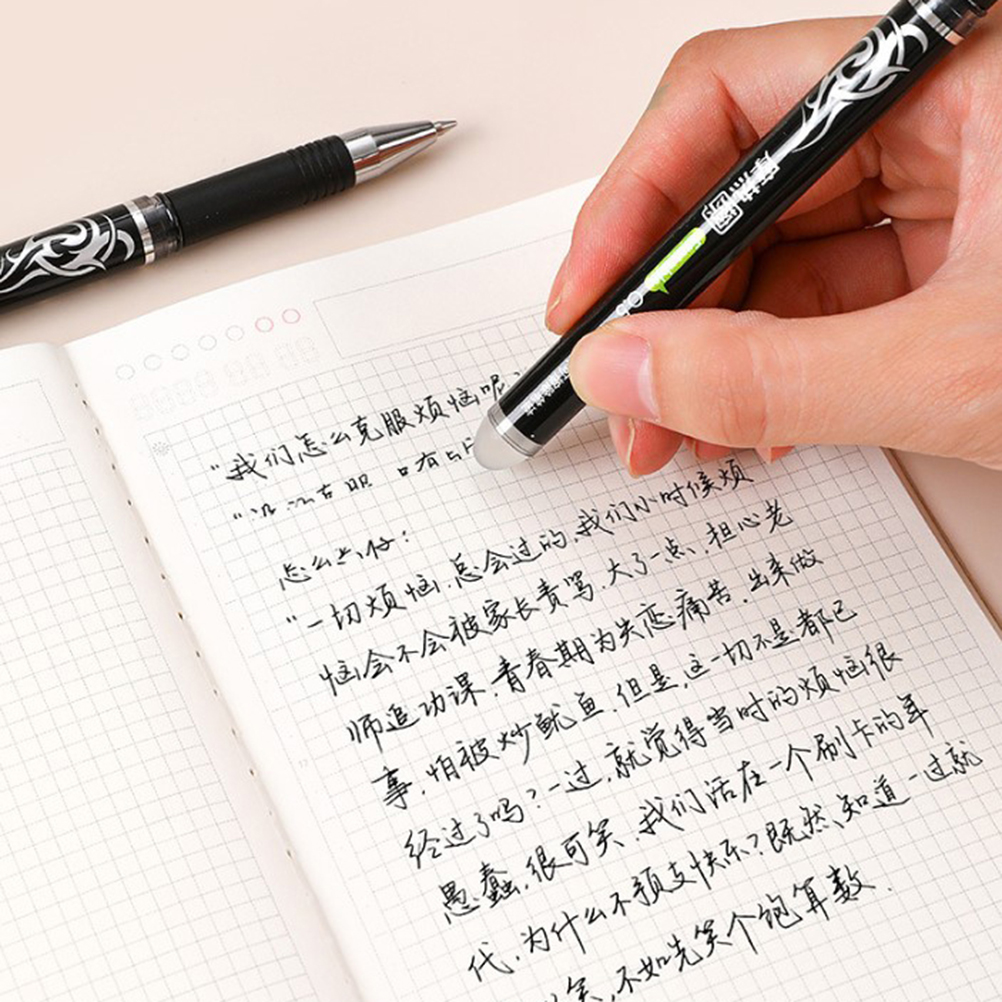 "我们怎么克服烦恼呢
"没法克服 只有
怎么
"一切烦恼,总会过的,我们小时候烦
恼会不会被家长责骂,大了一点,担心老
师追功课,青春期为失恋痛苦,出来做
事,怕被炒鱿鱼,但是,这一切不是都已
经过了吗?一过,就觉得当时的烦恼很
愚蠢,很可笑,我们活在一个刷卡的年
代,为什么不预支快乐?既然知道一过就
笑,不如先笑个饱算数.
摩易擦